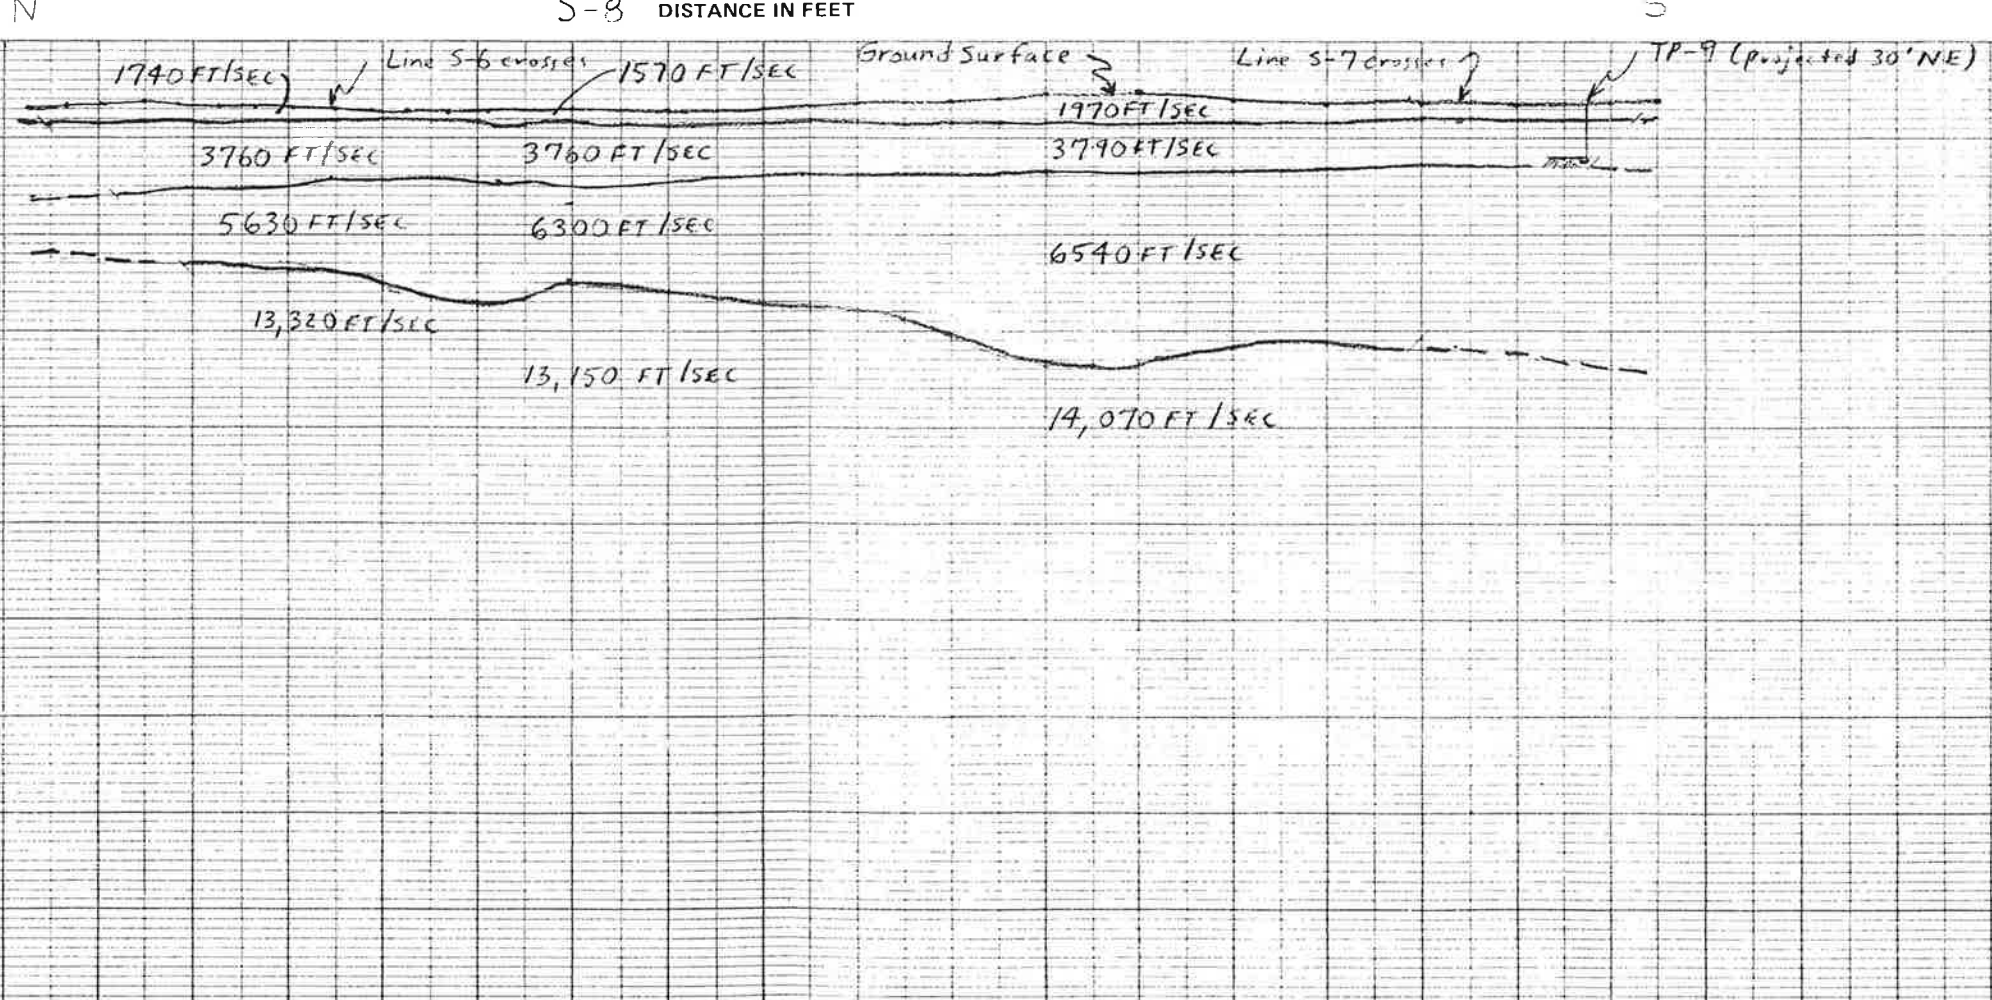 N S-8 DISTANCE IN FEET S
1740 FT/SEC
Line S-6 crosses
1570 FT/SEC
Ground Surface
Line S-7 crosses
TP-9 (projected 30' NE)
1970 FT/SEC
3760 FT/SEC
3760 FT/SEC
3790 FT/SEC
5630 FT/SEC
6300 FT/SEC
6540 FT/SEC
13,320 FT/SEC
13,150 FT/SEC
14,070 FT/SEC